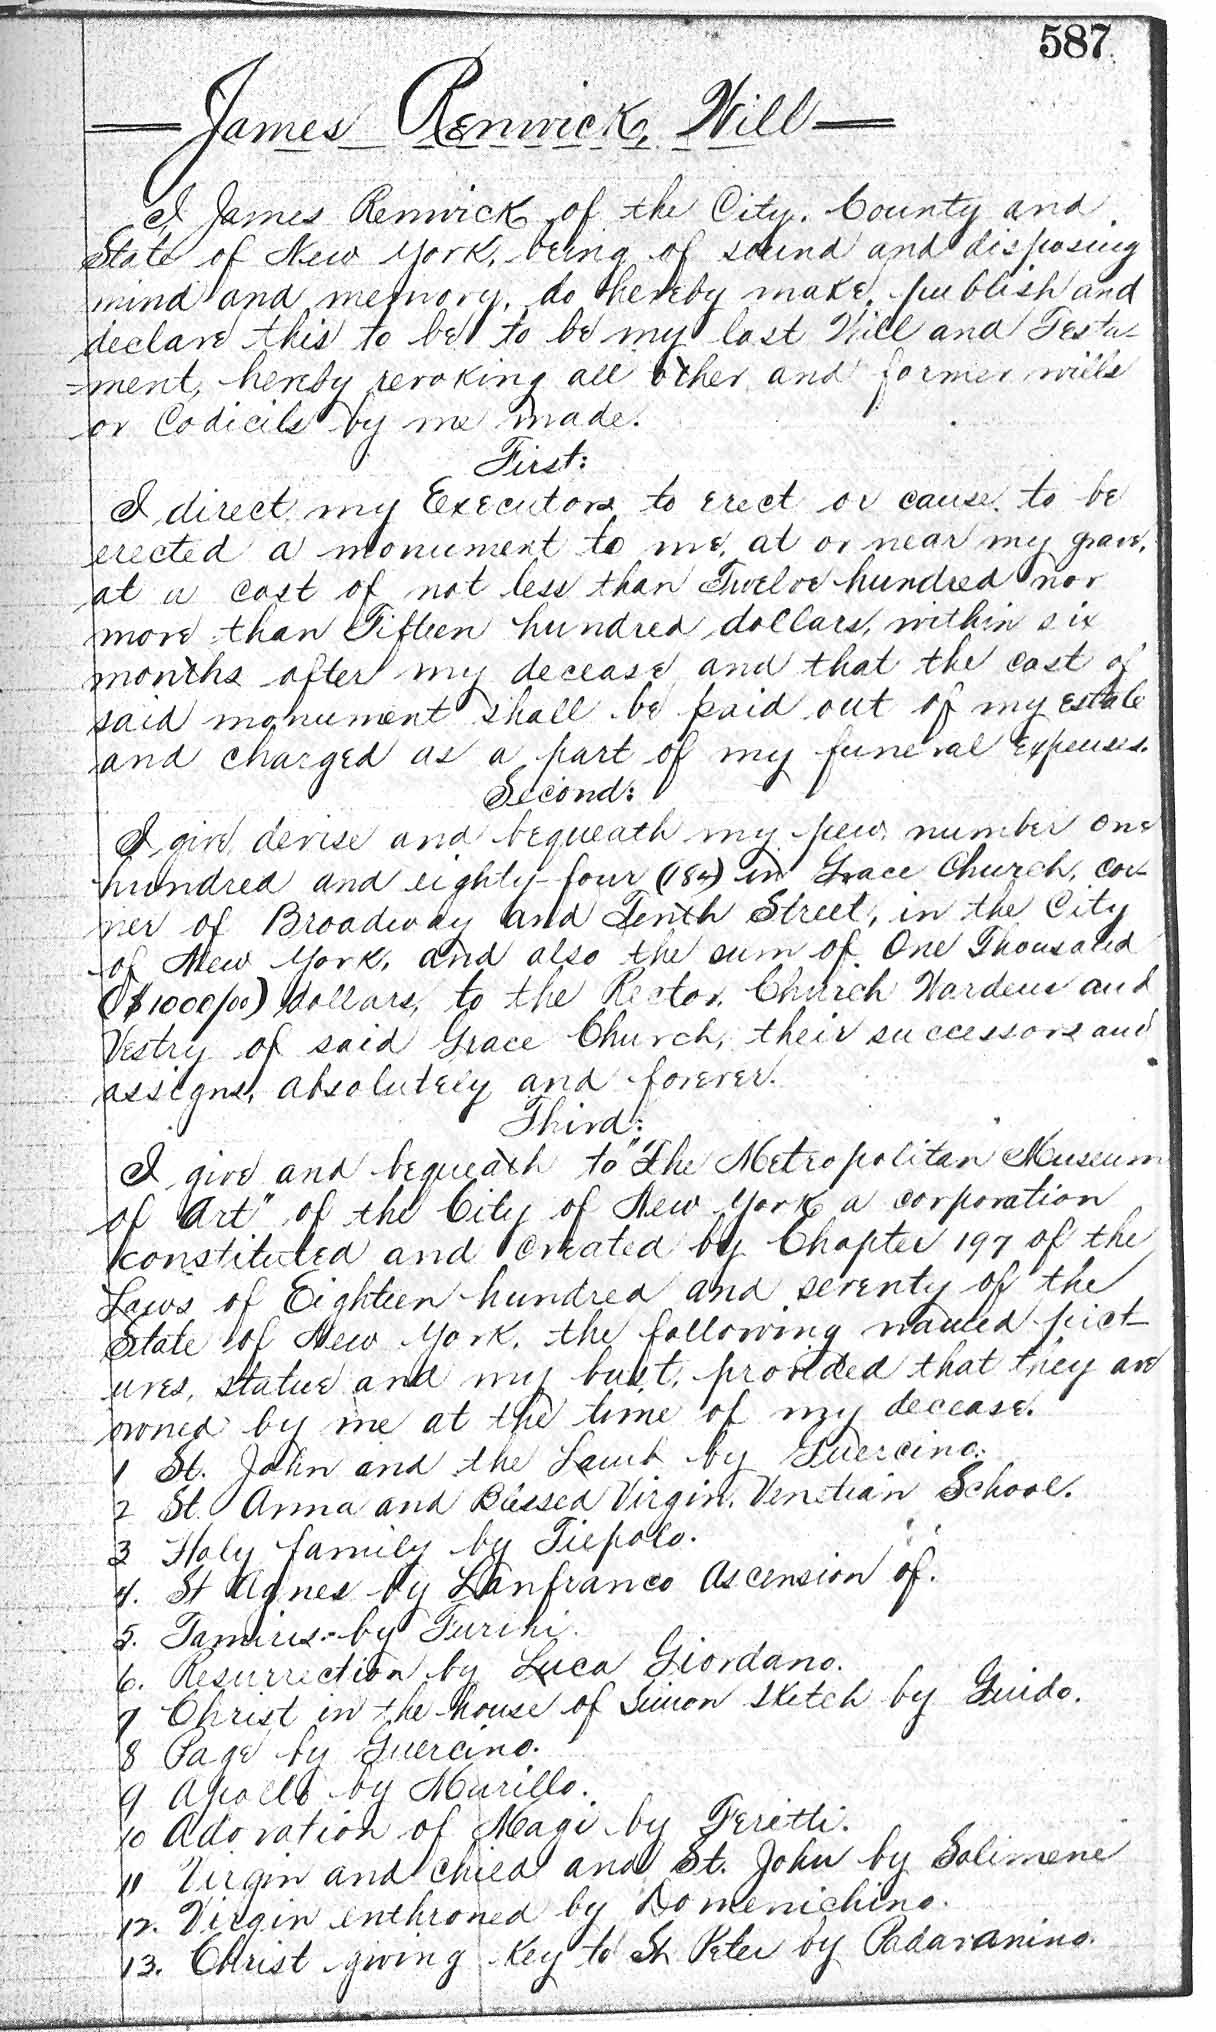 587.
James Renwick, Will
I, James Renwick of the City, County and
State of New York, being of sound and disposing
mind and memory, do hereby make, publish and
declare this to be to be my last Will and Testa-
-ment, hereby revoking all other and former wills
or Codicils by me made.
First:
I direct my Executors to erect or cause to be
erected a monument to me, at or near my grave,
at a cost of not less than Twelve hundred nor
more than Fifteen hundred dollars, within six
months after my decease and that the cost of
said monument shall be paid out of my estate
and charged as a part of my funeral expenses.
Second:
I give, devise and bequeath my pew, number one
hundred and eighty-four (184) in Grace Church, cor-
ner of Broadway and Tenth Street, in the City
of New York, and also the sum of One Thousand
($1000/00) dollars, to the Rector, Church Wardens and
Vestry of said Grace Church, their successors and
assigns, absolutely and forever.
Third:
I give and bequeath to "The Metropolitan Museum
of Art" of the City of New York a corporation
constituted and created by Chapter 197 of the
Laws of Eighteen hundred and seventy of the
State of New York, the following named pict-
ures, statue and my bust, provided that they are
owned by me at the time of my decease.
1 St. John and the Lamb by Guercino.
2 St. Anna and Blessed Virgin, Venetian School.
3 Holy family by Tiepolo.
4. St Agnes by Lanfranco Ascension of.
5. Tamiris by Furini.
6. Resurrection by Luca Giordano.
7 Christ in the house of Simon sketch by Guido.
8 Page by Guercino.
9 Apollo by Murillo.
10 Adoration of Magi by Feretti.
11 Virgin and child and St. John by Solimene
12. Virgin enthroned by Domenichino.
13. Christ giving key to St. Peter by Padavanino.